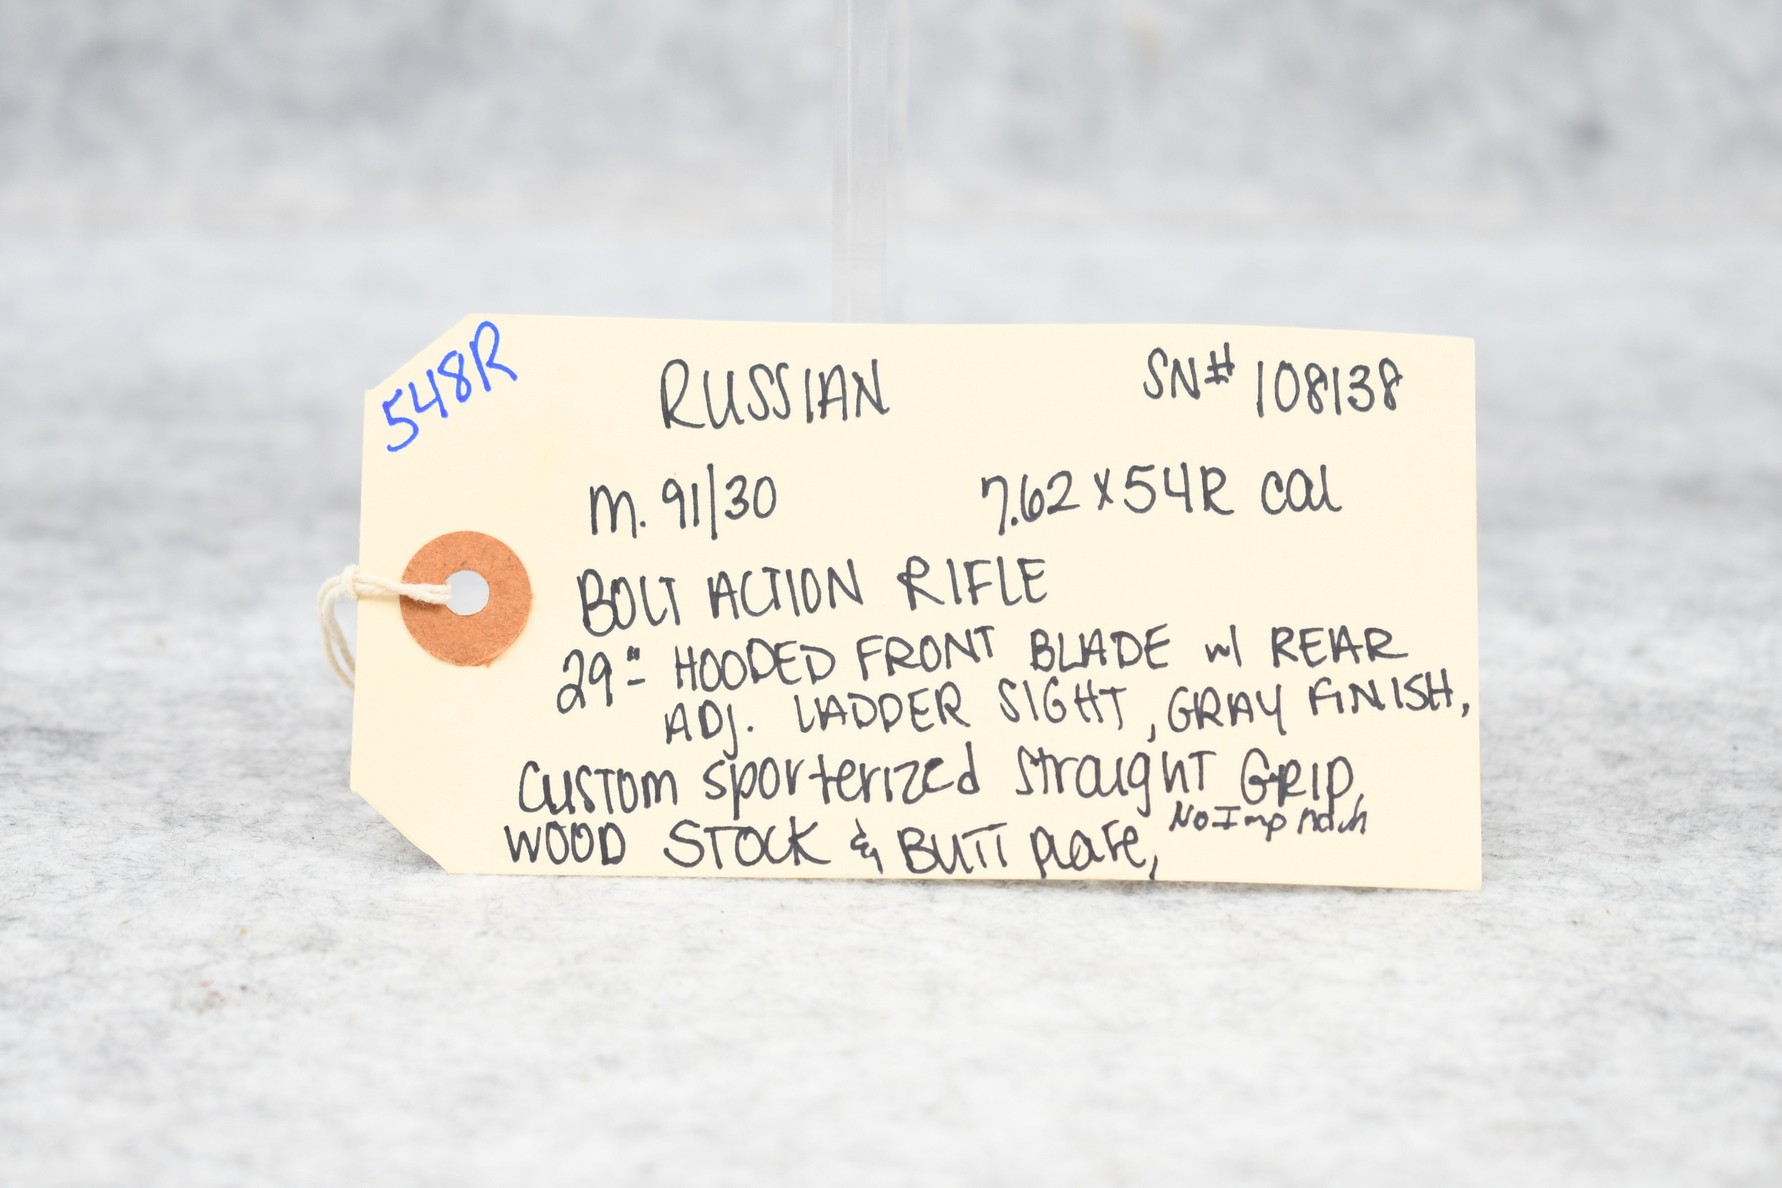 548R
RUSSIAN SN# 108138
M. 91/30 7.62 x 54R cal
BOLT ACTION RIFLE
29" HOODED FRONT BLADE w/ REAR
ADJ. LADDER SIGHT, GRAY FINISH,
CUSTOM sporterized straight GRIP,
WOOD STOCK & BUTT plate,
No Imp